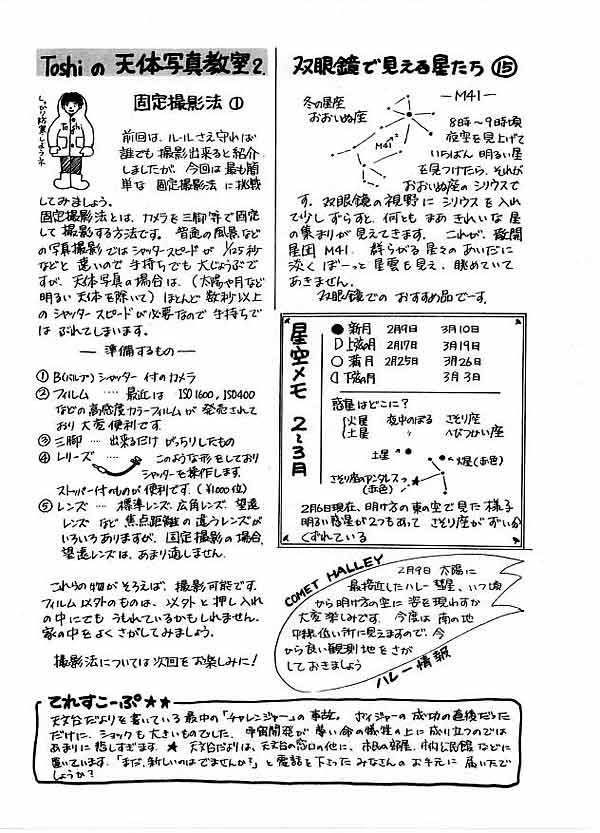 Toshiの 天体写真教室2.
しっかり防寒しようネ
Toshi
固定撮影法 ①
前回は、ルールさえ守れば
誰でも撮影出来ると紹介
しましたが、今回は最も簡
単な 固定撮影法 に挑戦
してみましょう。
固定撮影法とは、カメラを三脚等で固定
して撮影する方法です。普通の風景など
の写真撮影ではシャッタースピードが 1/125秒
などと速いので手持ちでも大じょうぶで
すが、天体写真の場合は、(太陽や月など
明るい天体を除いて)ほとんど数秒以上
のシャッタースピードが必要なので手持ちで
は ぶれてしまいます。
― 準備するもの ―
① B(バルブ)シャッター 付のカメラ
② フィルム ‥‥ 最近は ISO1600, ISO400
などの高感度カラーフィルムが発売されて
おり 大変便利です
③ 三脚 ‥‥ 出来るだけ がっちりしたもの
④ レリーズ ‥‥ このような形をしており
シャッターを操作します
ストッパー付のものが便利です.(¥1000位)
⑤ レンズ ‥‥ 標準レンズ、広角レンズ、望遠
レンズ など 焦点距離の違うレンズが
いろいろありますが、固定撮影の場合、
望遠レンズは、あまり適しません.
これらの物がそろえば、撮影可能です.
フィルム以外のものは、以外と押し入れ
の中にでも うもれているかもしれません.
家の中をよくさがしてみましょう.
撮影法については次回をお楽しみに!
双眼鏡で見える星たち ⑮
― M41 ―
冬の星座
おおいぬ座
M41
8時〜9時頃
夜空を見上げて
いちばん 明るい星
を見つけたら、それが
おおいぬ座の シリウスで
す. 双眼鏡の視野に シリウスを入れ
て少しずらすと、何とも まあ きれいな 星
の集まりが見えてきます. これが、散開
星団 M41. 群らがる星々のあいだに
淡く ぼーっと 星雲も見え、眺めていて
あきません.
双眼鏡での おすすめ品でーす.
星空メモ 2〜3月
● 新月 2月9日 3月10日
上弦の月 2月17日 3月19日
○ 満月 2月25日 3月26日
下弦の月 3月3日
惑星はどこに?
火星 夜中のぼる さそり座
土星 〃 へびつかい座
土星
火星(赤色)
さそり座のアンタレス
(赤色)
2月6日現在、明け方の東の空で見た様子
明るい惑星が2つもあって さそり座がずいぶん
くずれている
COMET HALLEY
2月9日 太陽に
最接近したハレー彗星、いつ頃
から明け方の空に姿を現わすか
大変楽しみです. 今度は 南の地
平線低い所に見えますので、今
から良い観測地をさが
しておきましょう
ハレー情報
てれすこーぷ★★
天文台だよりを書いている最中の「チャレンジャー」の事故. ボイジャーの成功の直後だった
だけに、ショックも大きいものでした. 宇宙開発が 尊い命の犠牲の上に成り立つのでは
あまりに悲しすぎます. ★ 天文台だよりは、天文台の窓口の他に、市民の部屋、市内公民館などに
置いています.「まだ、新しいのはでませんか?」と電話を下さった みなさんのお手元に 届いたで
しょうか?